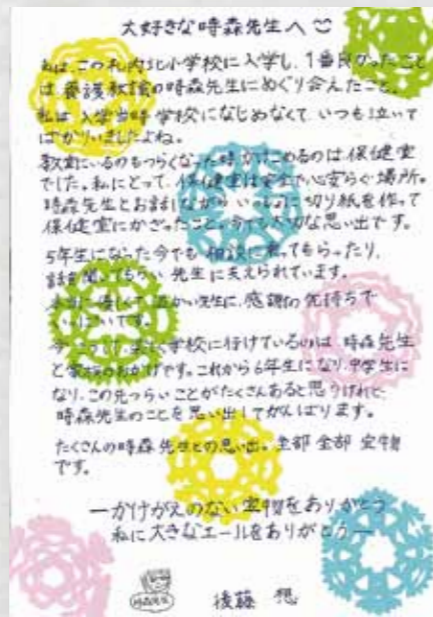 大好きな時森先生へ
私は、この札内北小学校に入学し、1番良かったこと
は、養護教諭の時森先生にめぐり会えたこと。
私は、入学当時 学校になじめなくて、いつも泣いて
ばかりいましたよね。
教室にいるのもつらくなった時 かけこめるのは 保健室
でした。私にとって、保健室は安全で心安らぐ場所。
時森先生とお話しながら いっしょに切り紙を作って
保健室にかざったこと。今でも大切な思い出です。
5年生になった今でも 相談に乗ってもらったり、
話を聞いてもらい 先生に支えられています。
本当に優しくて 温かい先生に、感謝の気持ちで
いっぱいです。
今こうして、楽しく学校に行けているのは、時森先生
と家族のおかげです。これから6年生になり、中学生に
なり、この先つらいことがたくさんあると思うけれど
時森先生のことを思い出してがんばります。
たくさんの時森先生との思い出。全部 全部 宝物
です。
―かけがえのない宝物をありがとう
私に大きなエールをありがとう―
後藤 想